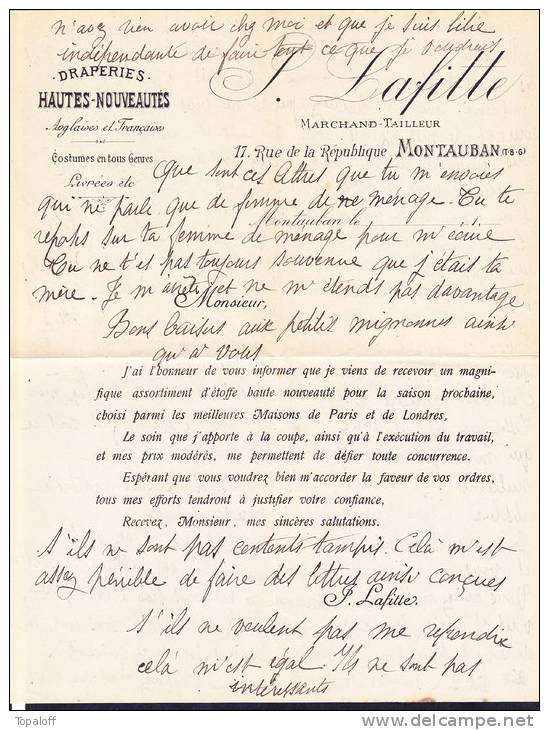 n'avez rien avoir chez moi et que je suis libre
indépendante de faire tout ce que je voudrais
DRAPERIES
HAUTES-NOUVEAUTÉS
Anglaises et Françaises
Costumes en tous Genres
Livrées etc
J. Lafitte
MARCHAND-TAILLEUR
17. Rue de la République MONTAUBAN (T-&-G)
Que sont ces lettres que tu m'envoies
qui ne parle que de femme de ménage. Tu te
Montauban le
repose sur ta femme de ménage pour m'écrire
Tu ne t'es pas toujours souvenue que j'étais ta
mère. Je m'arrête et ne m'étends pas davantage
Monsieur,
Bons baisers aux petites mignonnes ainsi
qu'a vous
J'ai l'honneur de vous informer que je viens de recevoir un magni-
fique assortiment d'étoffe haute nouveauté pour la saison prochaine,
choisi parmi les meilleures Maisons de Paris et de Londres,
Le soin que j'apporte à la coupe, ainsi qu'à l'exécution du travail,
et mes prix modérés, me permettent de défier toute concurrence.
Espérant que vous voudrez bien m'accorder la faveur de vos ordres,
tous mes efforts tendront à justifier votre confiance,
Recevez, Monsieur, mes sincères salutations.
S'ils ne sont pas contents tampis. Celà m'est
assez pénible de faire des lettres ainsi conçues
J. Lafitte.
S'ils ne veulent pas me reprendre
celà m'est égal. Ils ne sont pas
intéressants
Topaloff
www.delcampe.net